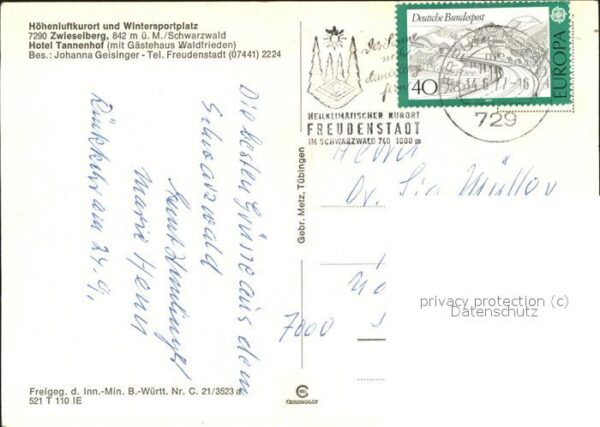 Höhenluftkurort und Wintersportplatz
7290 Zwieselberg, 842 m ü. M./Schwarzwald
Hotel Tannenhof (mit Gästehaus Waldfrieden)
Bes.: Johanna Geisinger - Tel. Freudenstadt (07441) 2224
Die besten Grüsse aus dem
Schwarzwald
Marie Henn
Rückkehr am 24.9.
Freigeg. d. Inn.-Min. B.-Württ. Nr. C. 21/3523 d.
521 T 110 IE
Gebr. Metz, Tübingen
HEILKLIMATISCHER KURORT
FREUDENSTADT
IM SCHWARZWALD 740 1000 m
Deutsche Bundespost
40
EUROPA
14.6.77-16
729
Herrn
Dr. Müller
7000
CEKACOLOR
privacy protection (c)
Datenschutz